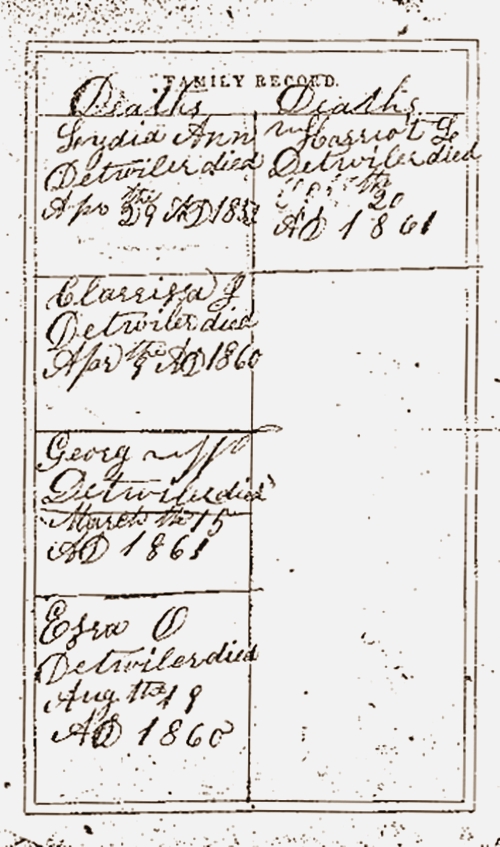 FAMILY RECORD.
Deaths
Lydia Ann
Detwiler died
Apr the 29 AD 185
Clarrissa J
Detwiler died
Apr the 9 AD 1860
Georg W
Detwiler died
March the 15
AD 1861
Ezra O
Detwiler died
Aug the 19
AD 1860
Deaths
Harriot L
Detwiler died
the
20
AD 1861